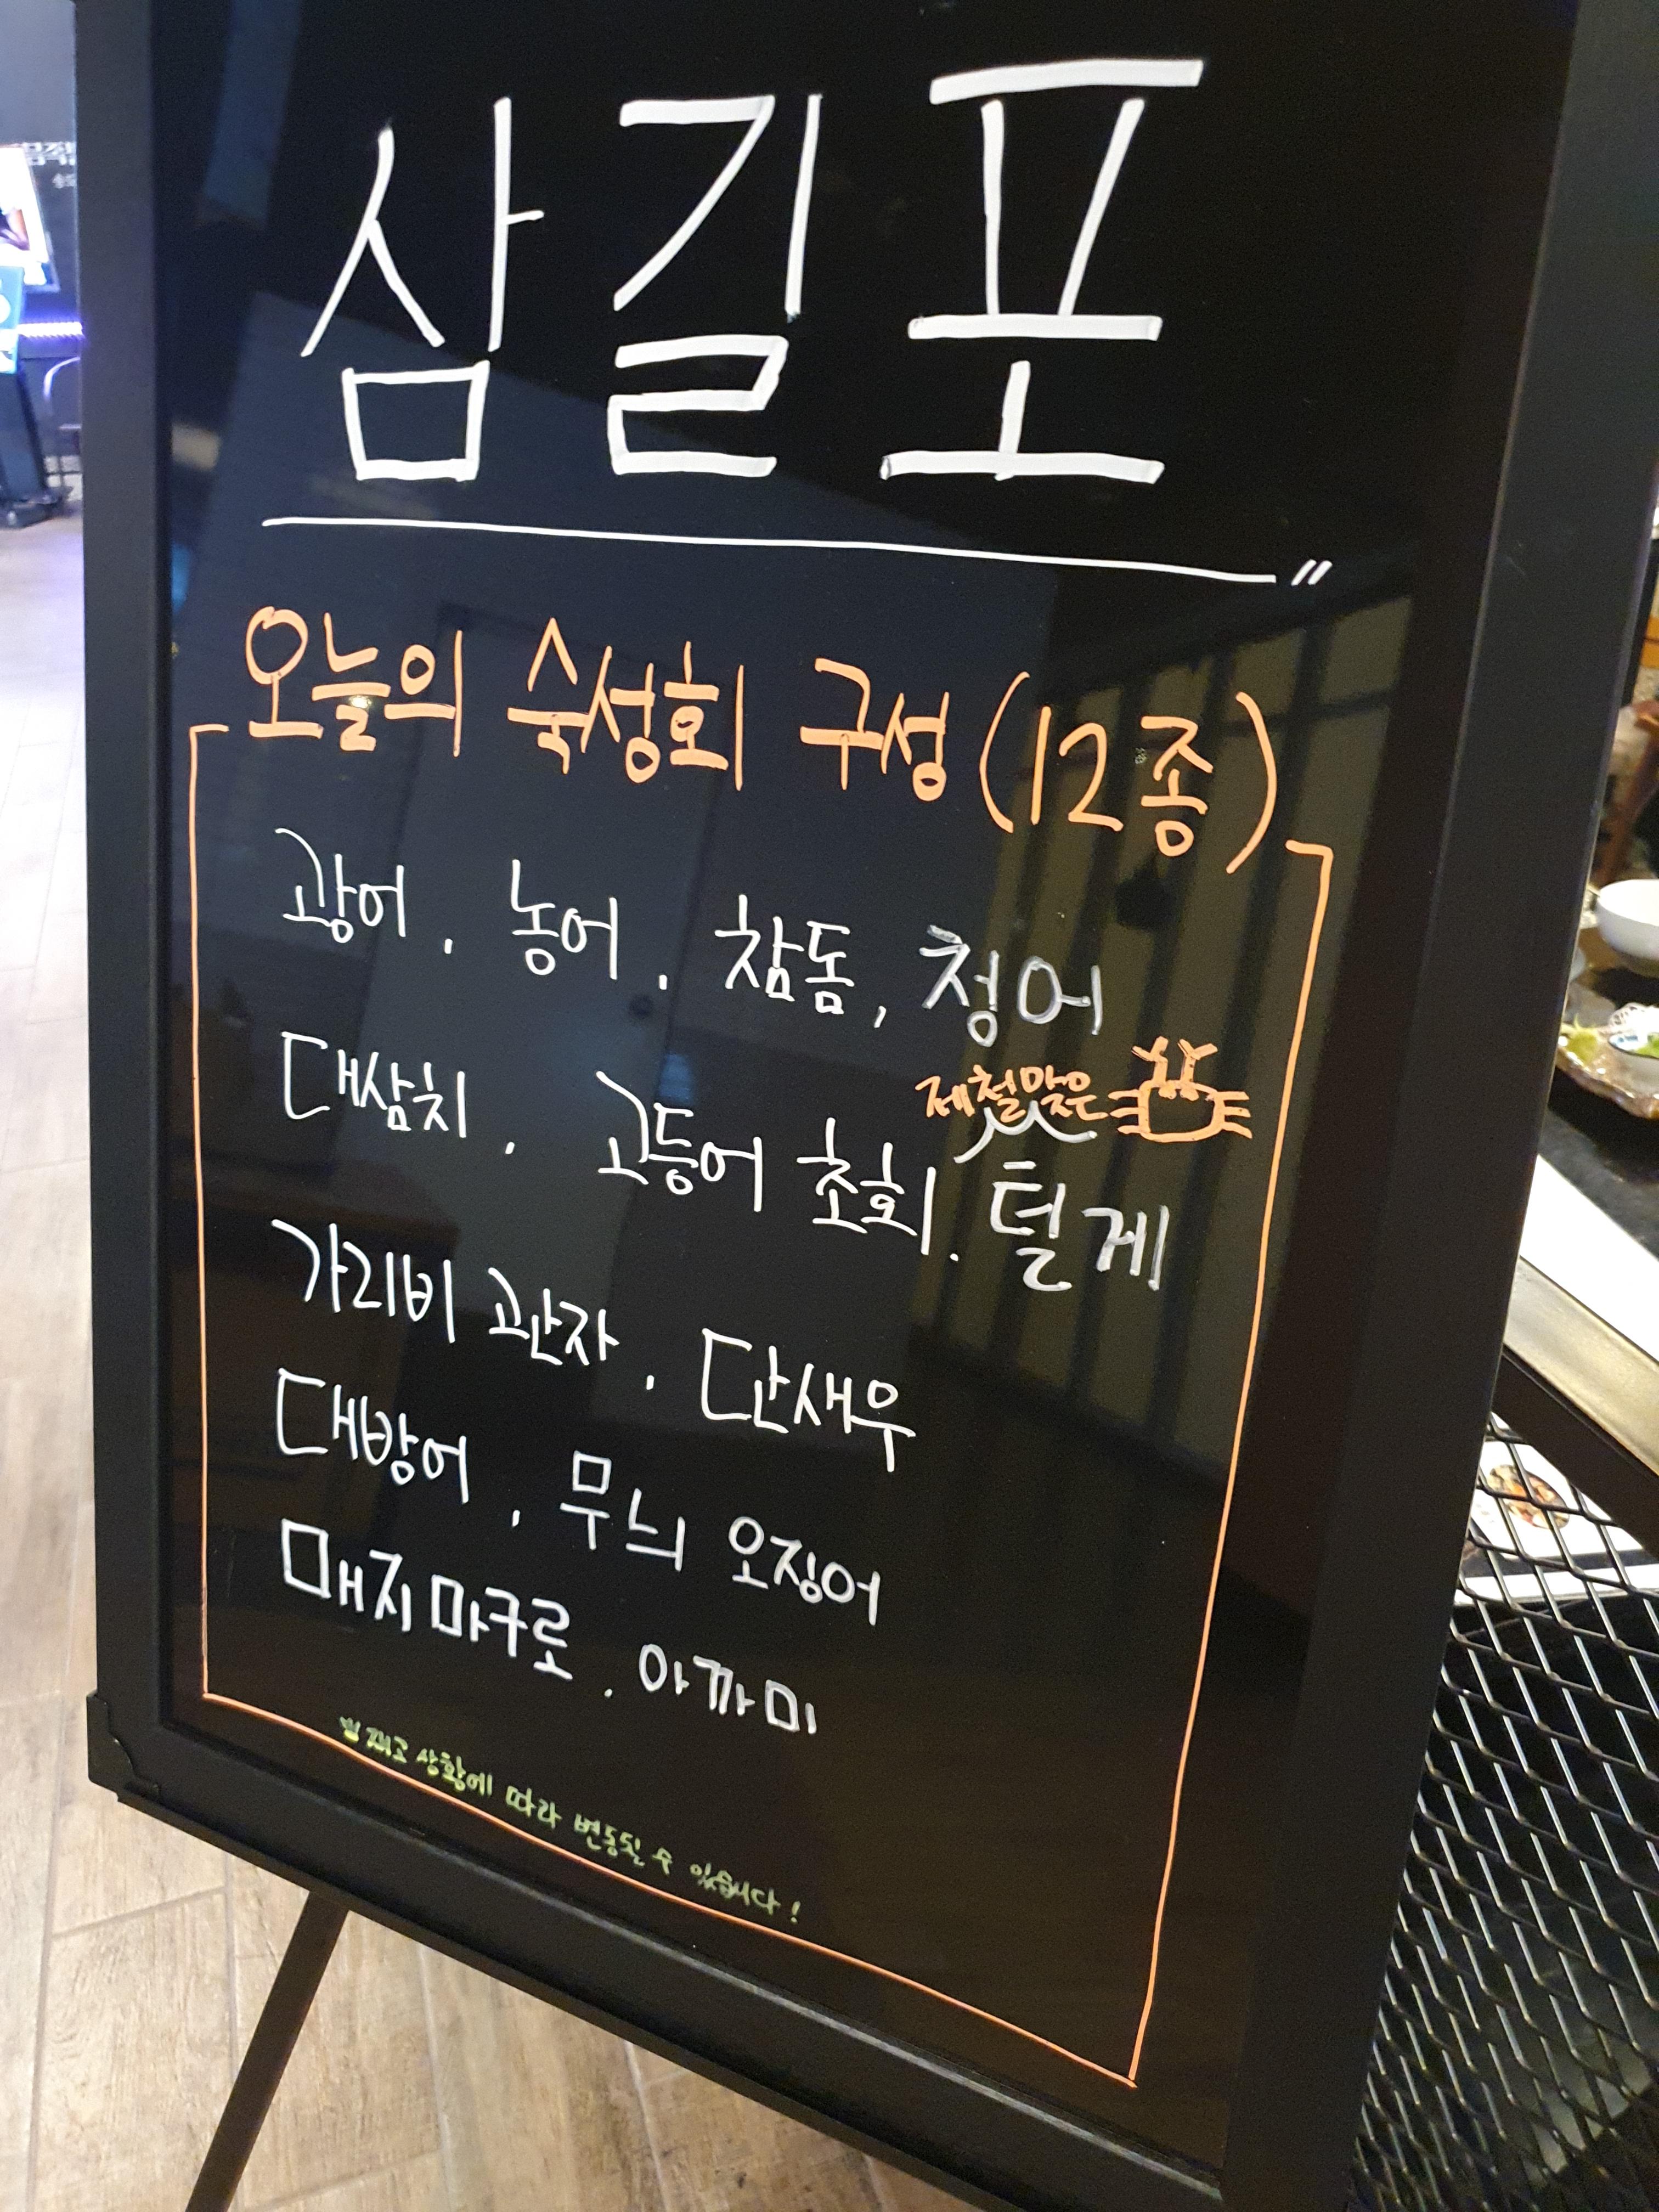 삼길포
오늘의 숙성회 구성(12종)
광어. 농어. 참돔, 청어
제철맞은
대삼치. 고등어 초회. 털게
가리비 관자. 단새우
대방어. 무늬 오징어
매지마구로. 아까미
재고 상황에 따라 변동될 수 있습니다!